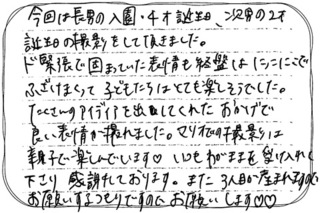 今回は長男の入園・4才誕生日、次男の2才
誕生日の撮影をして頂きました。
ド緊張で固まっていた表情も終盤はにっこにこで
ふざけまくって子どもたちはとても楽しそうでした。
たくさんのアイディアを出してくれたおかげで
良い表情が撮れました。マリオでの撮影は
親子で楽しんでいます♡ いつもわがままを受け入れて
下さり 感謝しております。また3人目が産まれますので
お願いするつもりですので お願いします♡♡